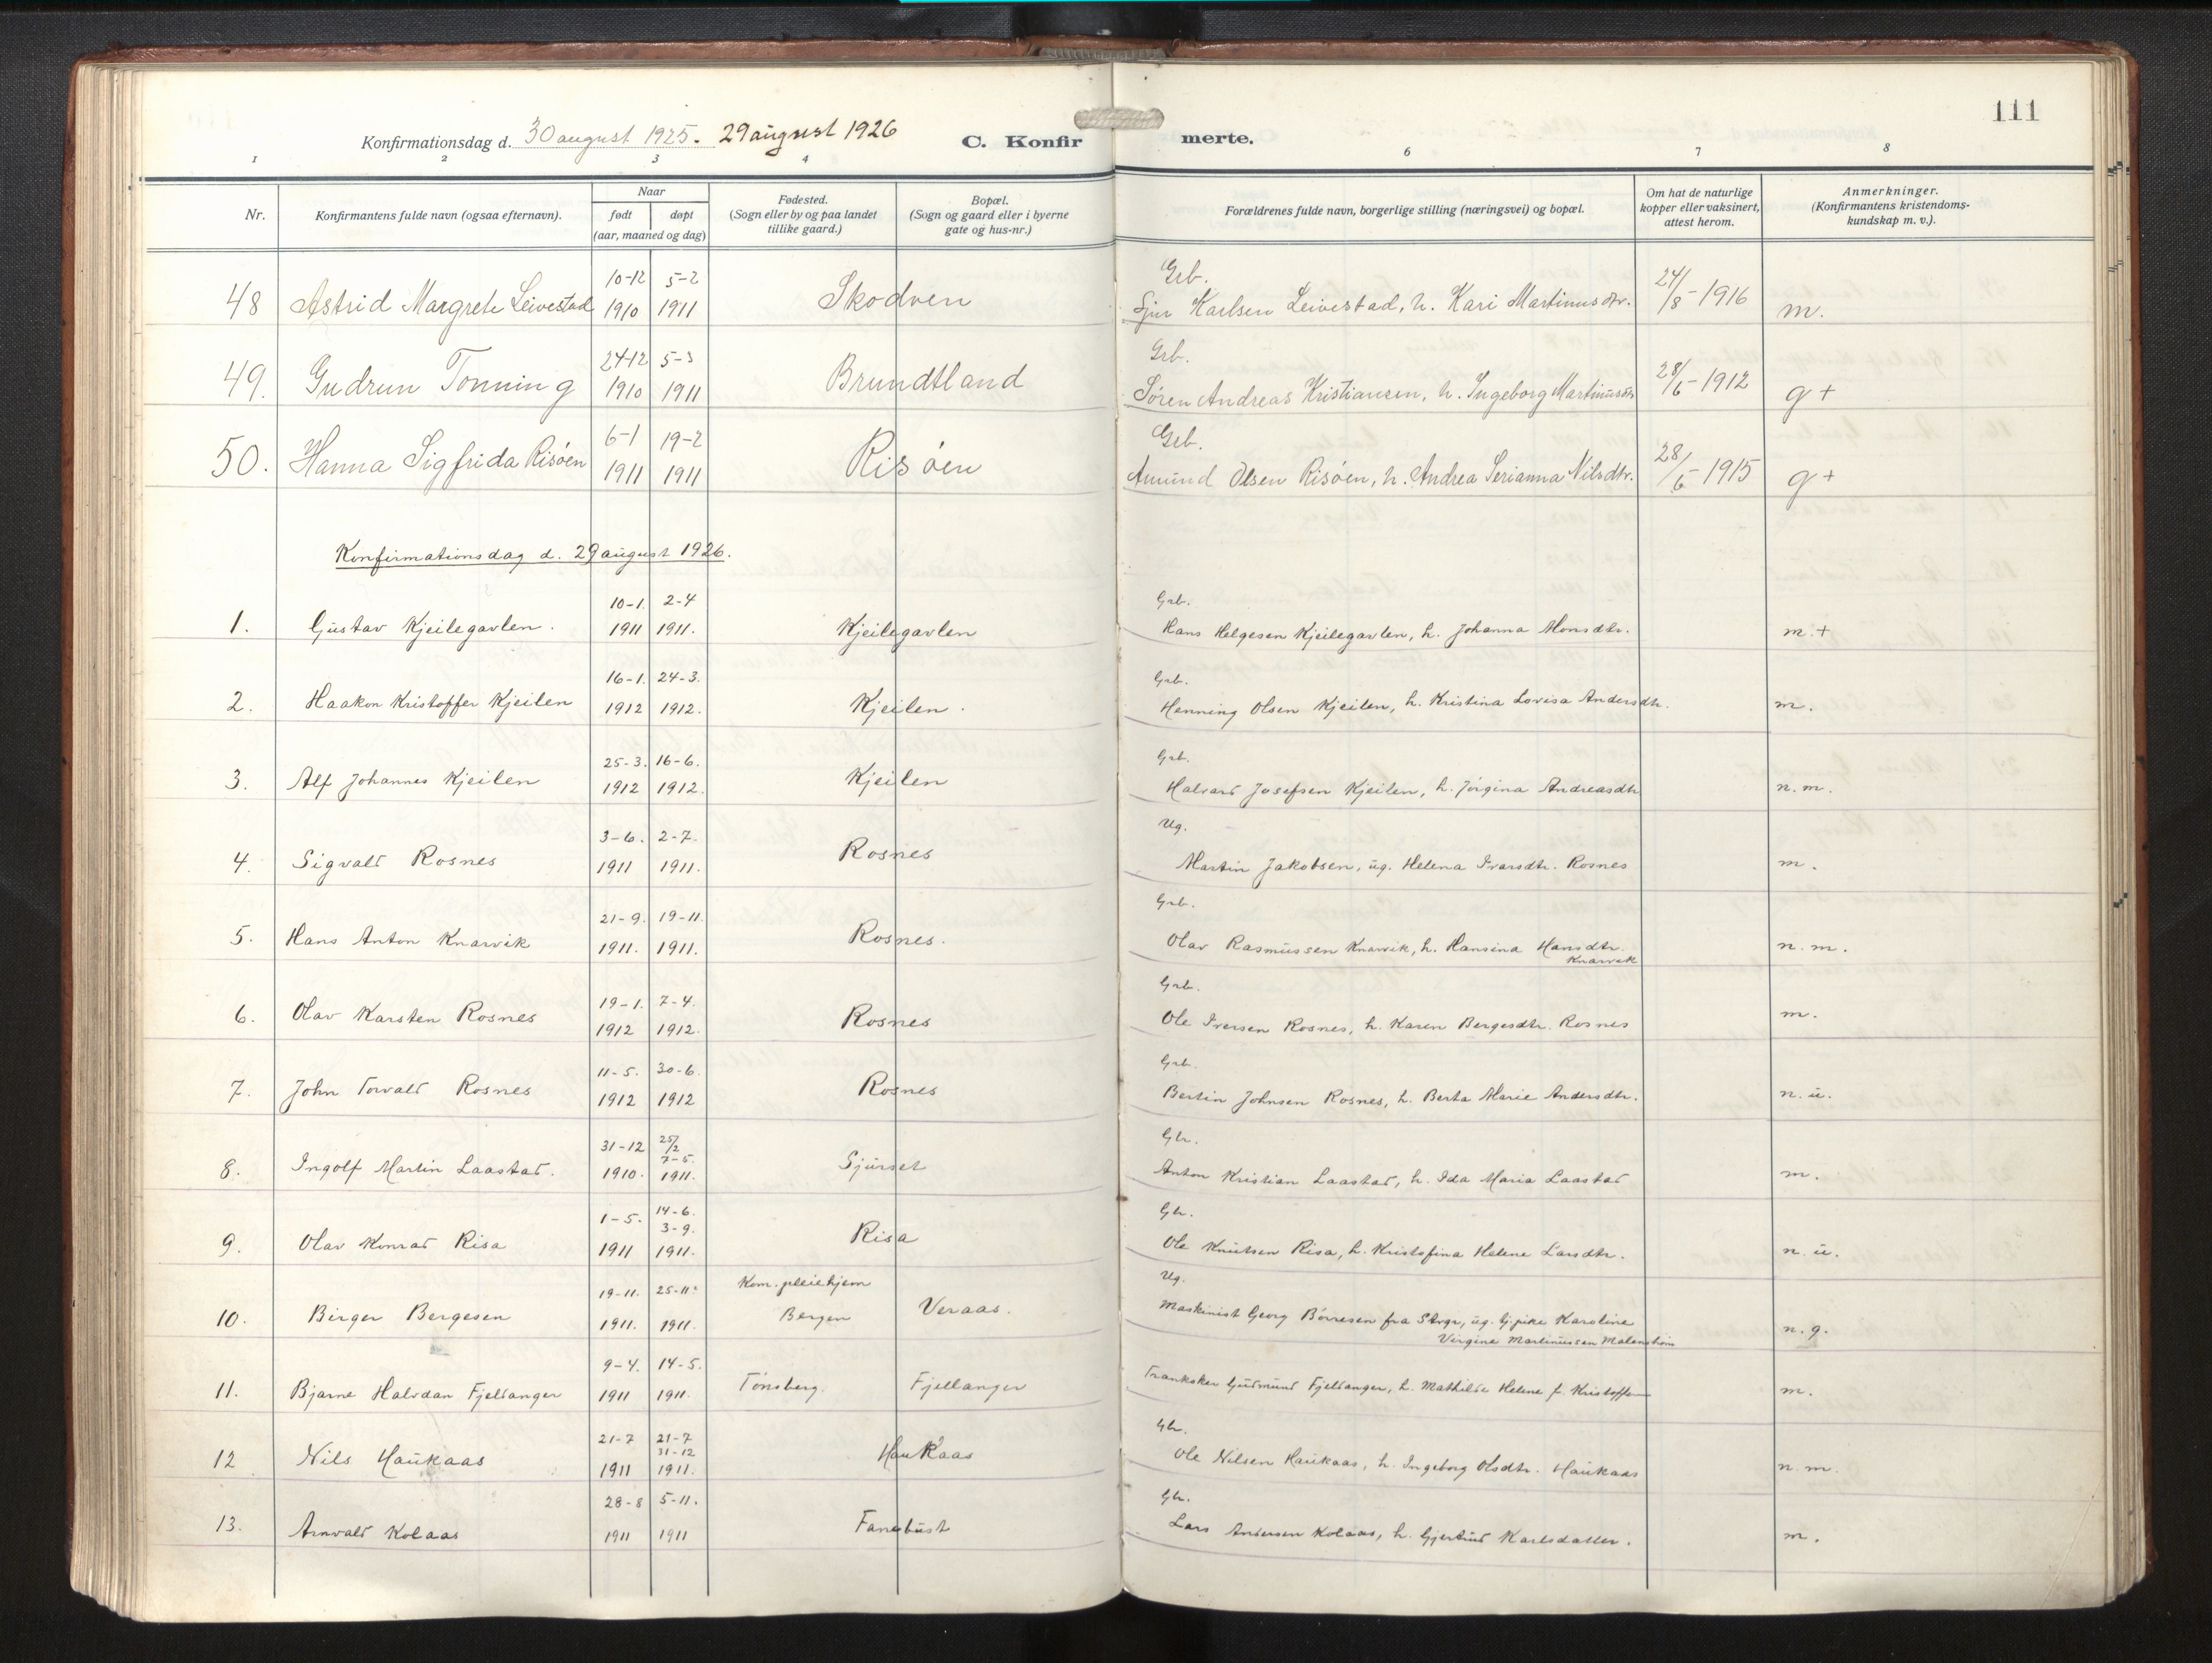 111
Konfirmationsdag d. 30 august 1925. 29 august 1926 C. Konfir merte.
1 2 3 4 6 7 8
Nr. Konfirmantens fulde navn (ogsaa efternavn). Naar født døpt (aar, maaned og dag) Fødested. (Sogn eller by og paa landet tillike gaard.) Bopæl. (Sogn og gaard eller i byerne gate og hus-nr.) Forældrenes fulde navn, borgerlige stilling (næringsvei) og bopæl. Om hat de naturlige kopper eller vaksinert, attest herom. Anmerkninger. (Konfirmantens kristendoms-kundskap m. v.).
10-12 5-2 Grb. 24/8-1916
48 Astrid Margrete Leivestad 1910 1911 Skodven Sjur Karlsen Leivestad, h. Kari Martinusdtr. m.
24-12 5-3 Grb. 28/6-1912
49. Gudrun Tonning 1910 1911 Brundtland Søren Andreas Kristiansen, h. Ingeborg Martinusdtr g+
6-1 19-2 Grb. 28/6-1915
50. Hanna Sigfrida Risøen 1911 1911 Risøen Amund Olsen Risøen, h. Andrea Serianna Nilsdtr. g+
Konfirmationsdag d. 29 august 1926.
10-1. 2-4 Grb.
1. Gustav Kjeilegavlen. 1911 1911. Kjeilegavlen Hans Helgesen Kjeilegavlen, h. Johanna Monsdtr. m.+
16-1. 24-3. Grb.
2. Haakon Kristoffer Kjeilen 1912 1912. Kjeilen. Henning Olsen Kjeilen, h. Kristina Lovisa Andersdtr. m.
25-3. 16-6. Grb.
3. Alf Johannes Kjeilen 1912 1912. Kjeilen Halvard Josefsen Kjeilen, h. Jørgina Andreasdtr n.m.
3-6. 2-7. Ug.
4. Sigvald Rosnes 1911 1911. Rosnes Martin Jakobsen, ug. Helena Ivarsdtr. Rosnes m.
21-9. 19-11. Grb.
5. Hans Anton Knarvik 1911. 1911. Rosnes. Olav Rasmussen Knarvik, h. Hansina Hansdtr. n.m.
Knarvik
19-1. 7-4. Grb.
6. Olav Karsten Rosnes 1912 1912. Rosnes Ole Iversen Rosnes, h. Karen Bergesdtr. Rosnes m.
11-5. 30-6. Grb.
7. John Torvald Rosnes 1912 1912 Rosnes Bertin Johnsen Rosnes, h. Berta Marie Andersdtr. n.u.
31-12 25/2 7-5. Gbr.
8. Ingolf Martin Laastad. 1910. 1911. Sjurset Anton Kristian Laastad, h. Ida Maria Laastad m.
1-5. 14-6. 3-9. Gbr.
9. Olav Konrad Risa 1911 1911. Risa Ole Knutsen Risa, h. Kristofina Helene Larsdtr. n.u.
19-11. 25-11. Kom. pleiehjem Ug.
10. Birger Bergesen 1911. 1911. Bergen Veraas. Maskinist Georg Børresen fra Stvgr, ug. tj.pike Karoline n.g.
Virgine Martinussen
9-4. 14-5.
11. Bjarne Halvdan Fjeldanger 1911 1911. Tønsberg. Fjellanger Trankoker Gudmund Fjeldanger, h. Mathilde Helene f. m.
21-7 21-7 31-12 Gbr.
12 Nils Haukaas 1911 1911. Haukaas Ole Nilsen Haukaas, h. Ingeborg Olsdtr. Haukaas n.m.
28-8 5-11. Gbr.
13. Arnvald Kolaas 1911 1911 Fanebust Lars Andersen Kolaas, h. Gjertrud Karlsdatter. m.